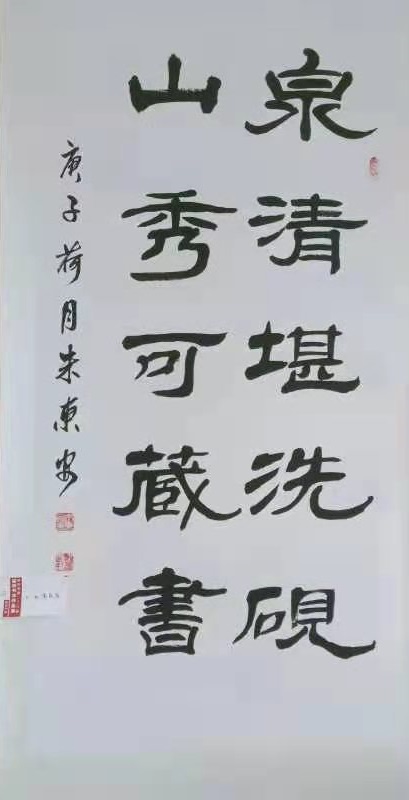 泉清堪洗硯
山秀可藏書
庚子荷月朱東安